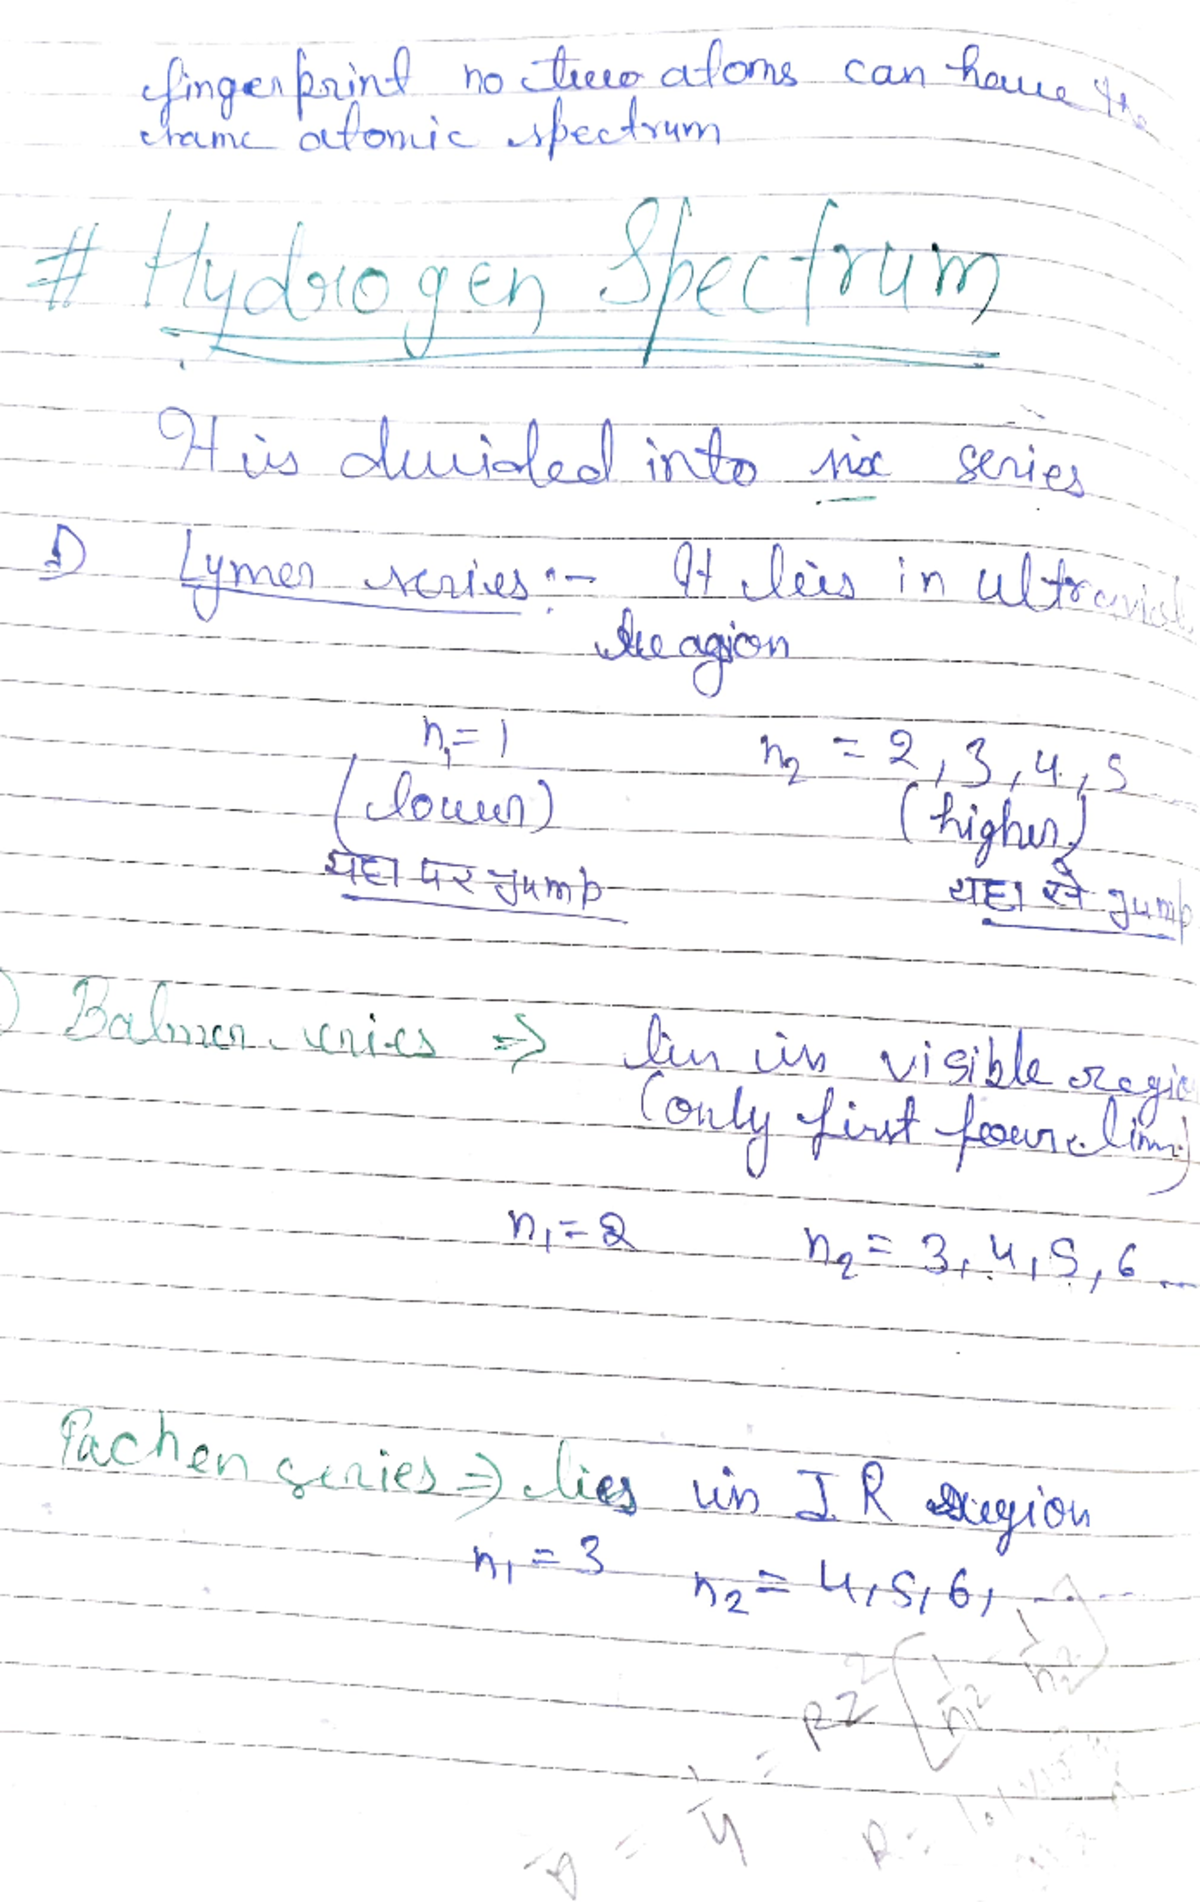 fingerprint no two atoms can have the
same atomic spectrum
# Hydrogen Spectrum
It is divided into six series
1) Lymer series :- It lies in ultraviol
Reagion
n₁ = 1 n₂ = 2, 3, 4, 5
(lower) (higher)
यहा पर Jump यहा से Jump
) Balmer series ⇒ lies in visible regio
(only first four line)
n₁ = 2 n₂ = 3, 4, 5, 6 ...
Pachen series ⇒ lies in IR region
n₁ = 3 n₂ = 4, 5, 6, ...
= RZ² (1/n₁² - 1/n₂²)
R =